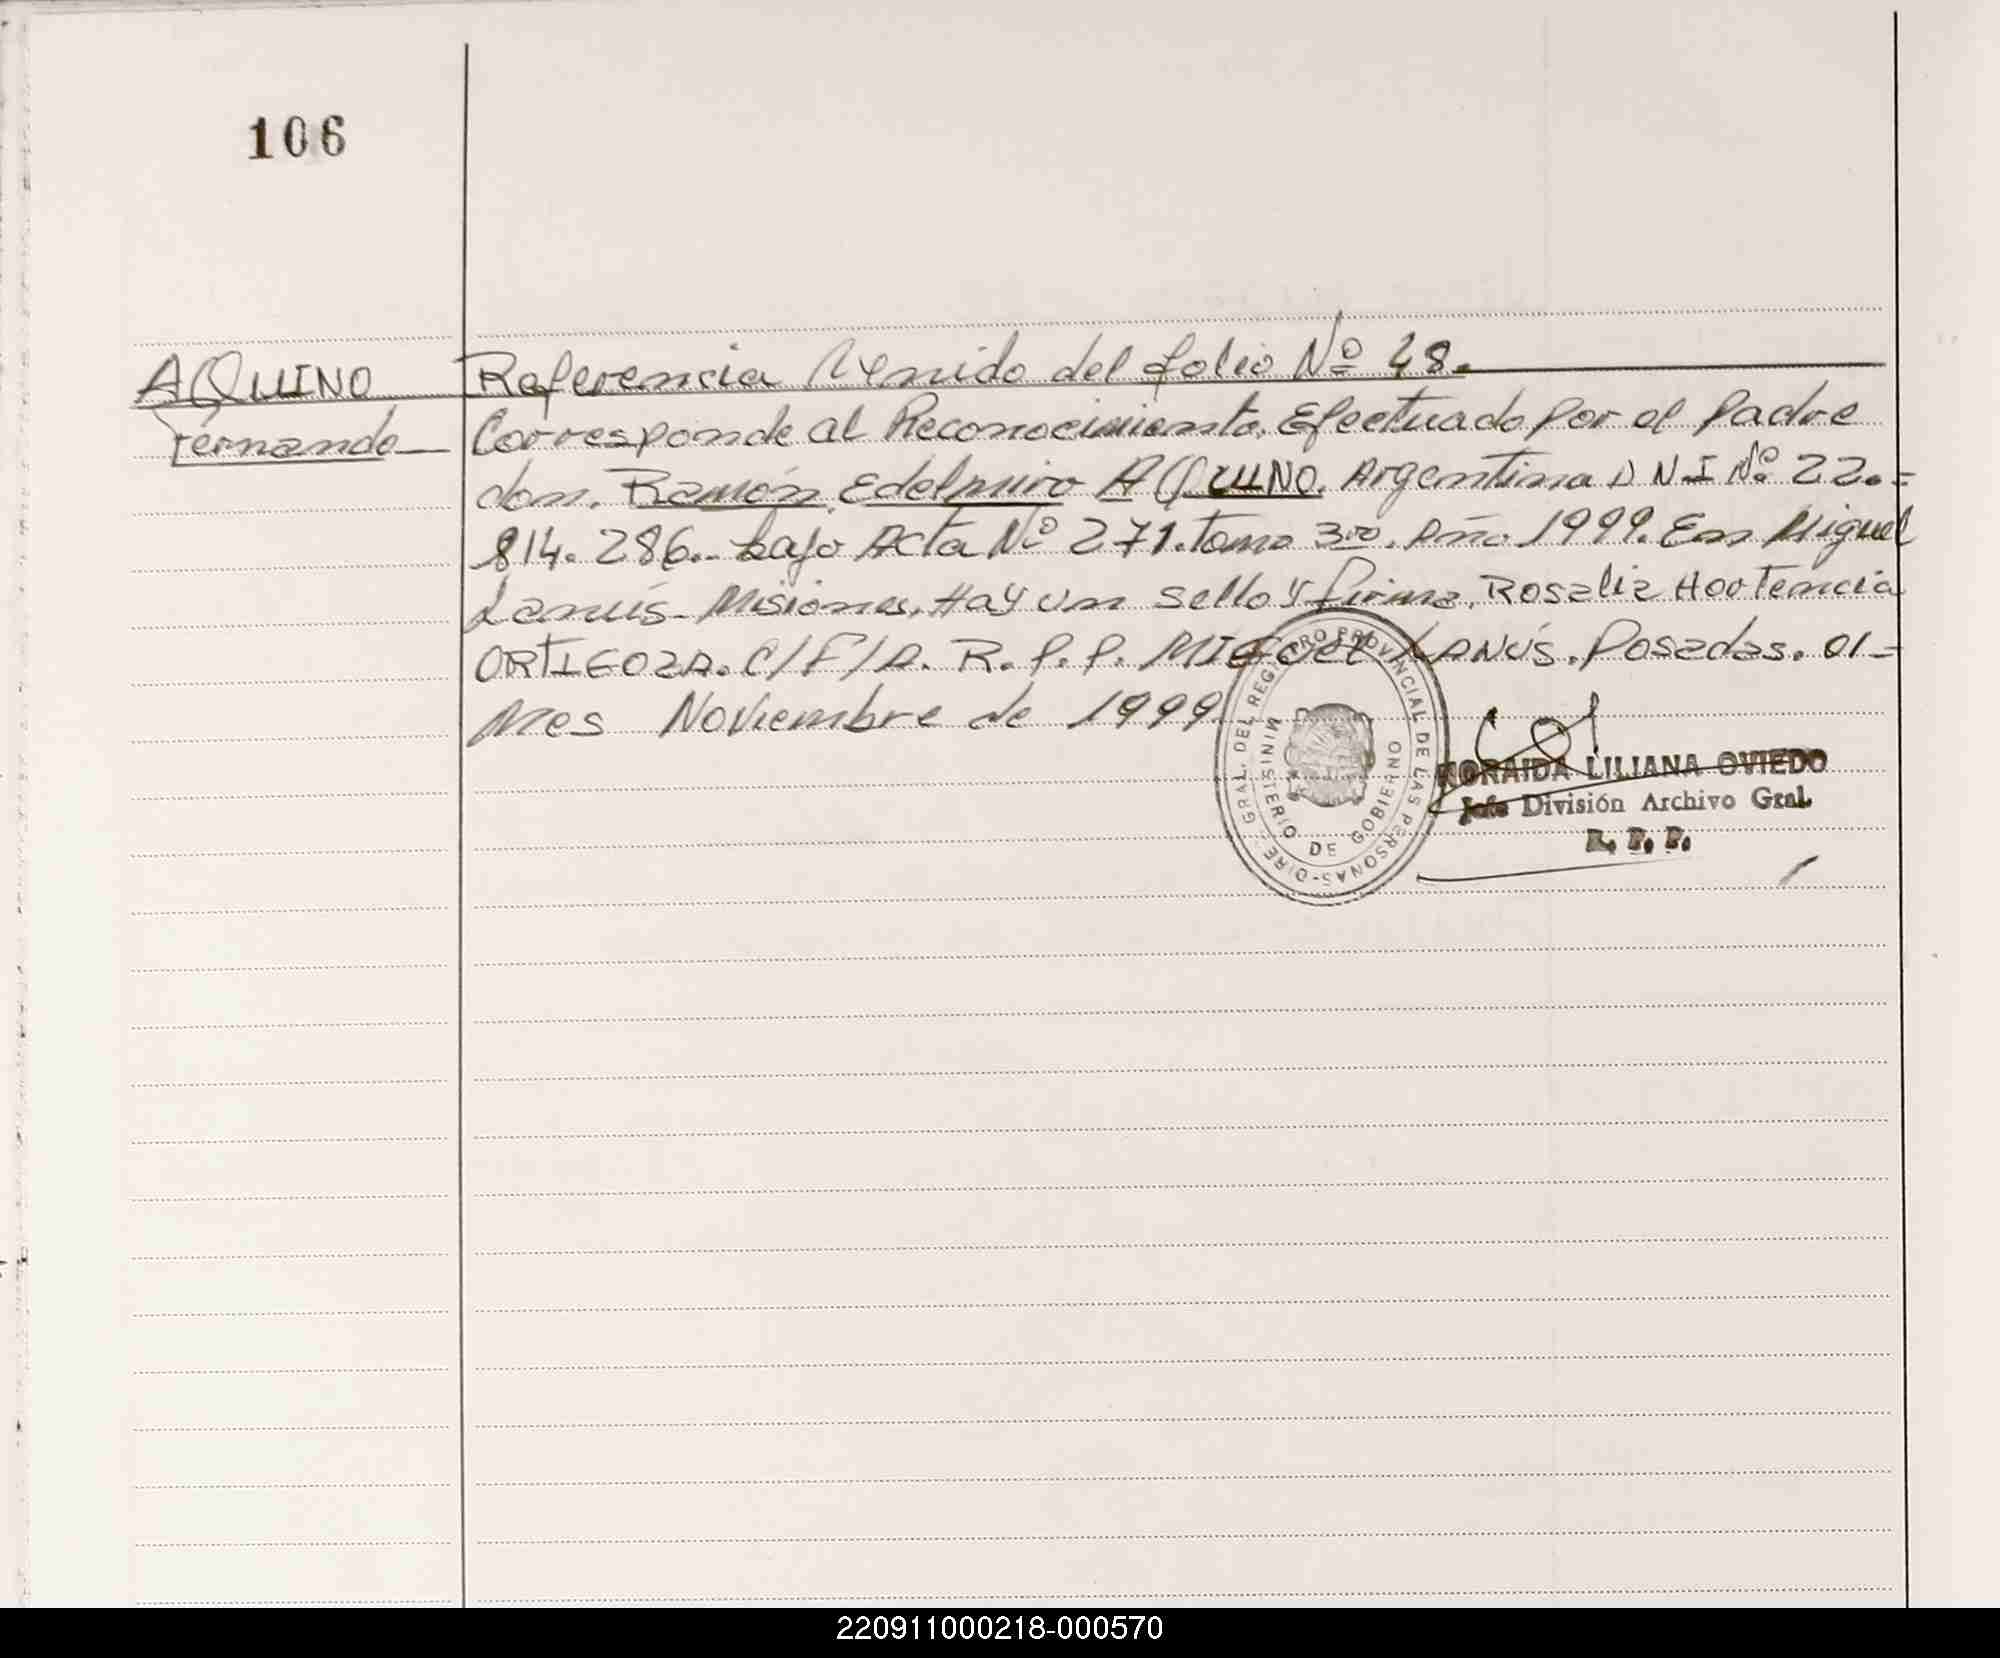 106
AQUINO
Fernando
Referencia Venido del folio Nº 48.
Corresponde al Reconocimiento. Efectuado Por el Padre
don. Ramón. Edelmiro AQUINO. Argentino D N I Nº 22.=
814.286.- bajo Acta Nº 271. tomo 3ro. Año. 1999. En Miguel
Lanús. Misiones. Hay un sello y firma. Rosalia Hortencia
ORTIGOZA. C/F/D. R. P. P. MIGUEL LANÚS. Posadas. 01=
Mes Noviembre de 1999
DIRE. GRAL. DEL REGISTRO PROVINCIAL DE LAS PERSONAS-
MINISTERIO DE GOBIERNO
ZORAIDA LILIANA OVIEDO
Jefe División Archivo Gral.
R. P. P.
220911000218-000570